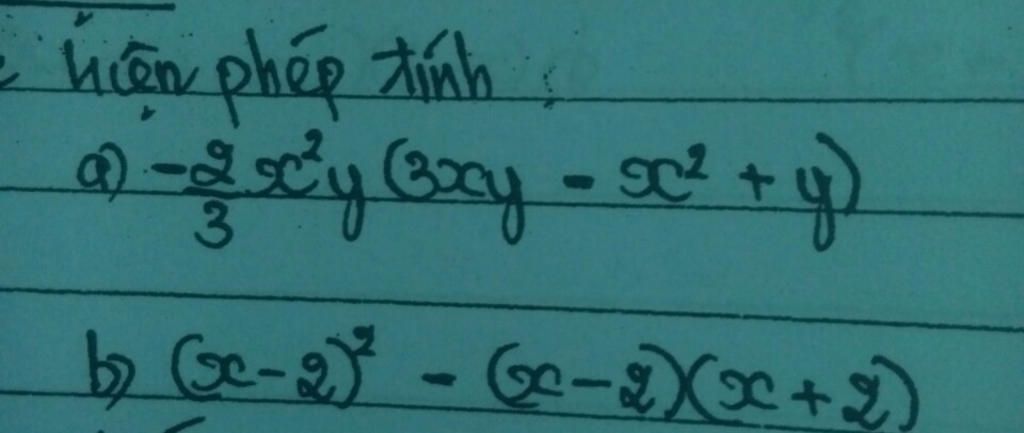 hiện phép tính :
a) -2/3 x²y (3xy - x² + y)
b) (x-2)² - (x-2)(x+2)